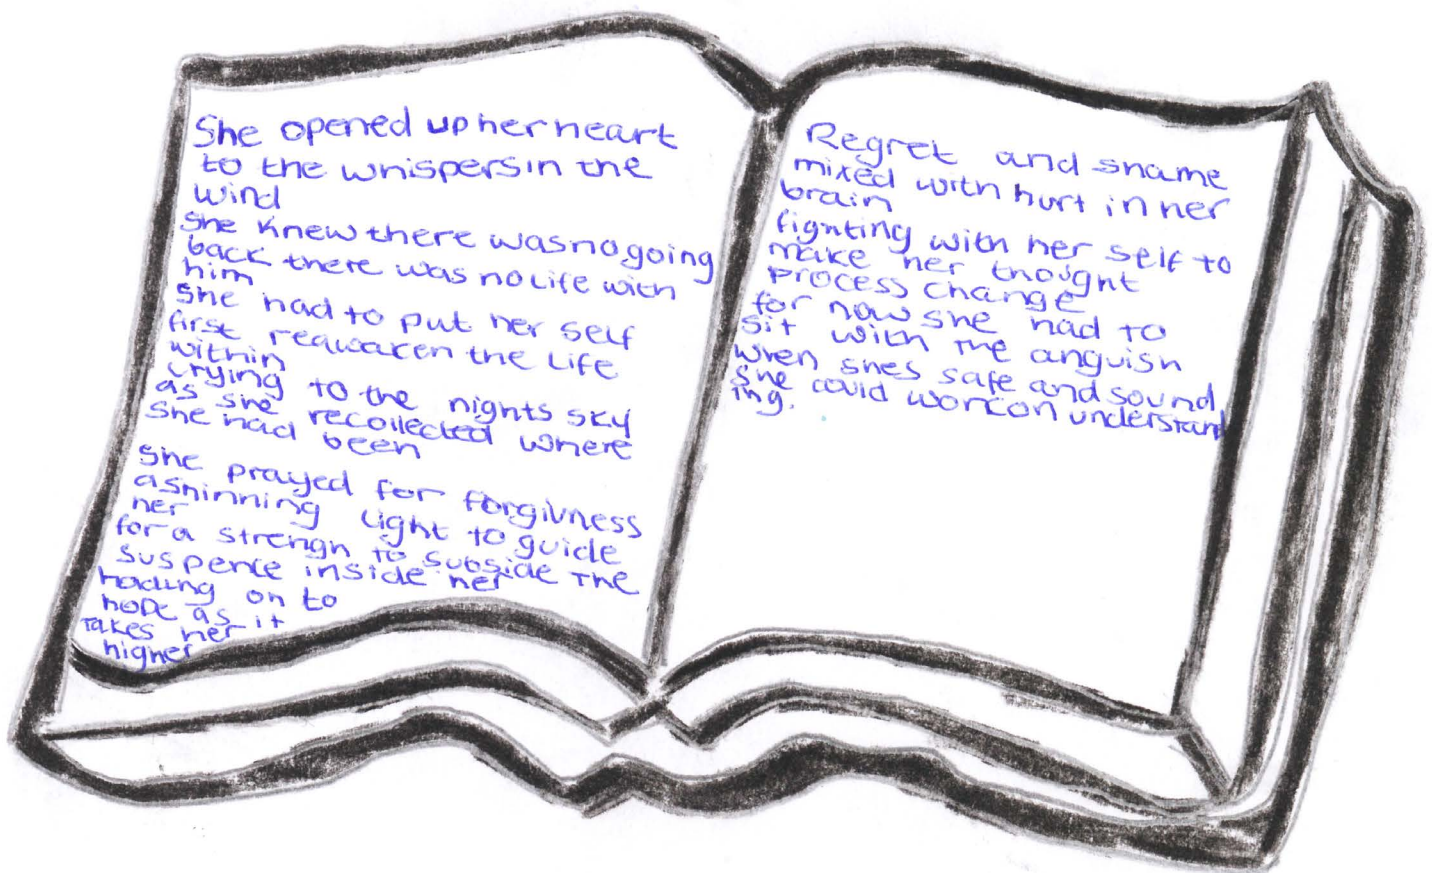 She opened up her heart
to the whispers in the
wind
She knew there was no going
back there was no life with
him
She had to put her self
first reawaken the life
within
crying to the nights sky
as she recollected where
She had been
She prayed for forgivness
a shinning light to guide
her
for a strengh to subside the
suspence inside her
holding on to
hope as it
takes her
higher
Regret and shame
mixed with hurt in her
brain
fighting with her self to
make her thought
process change
for now she had to
sit with the anguish
when shes safe and sound
She could work on understand
ing.